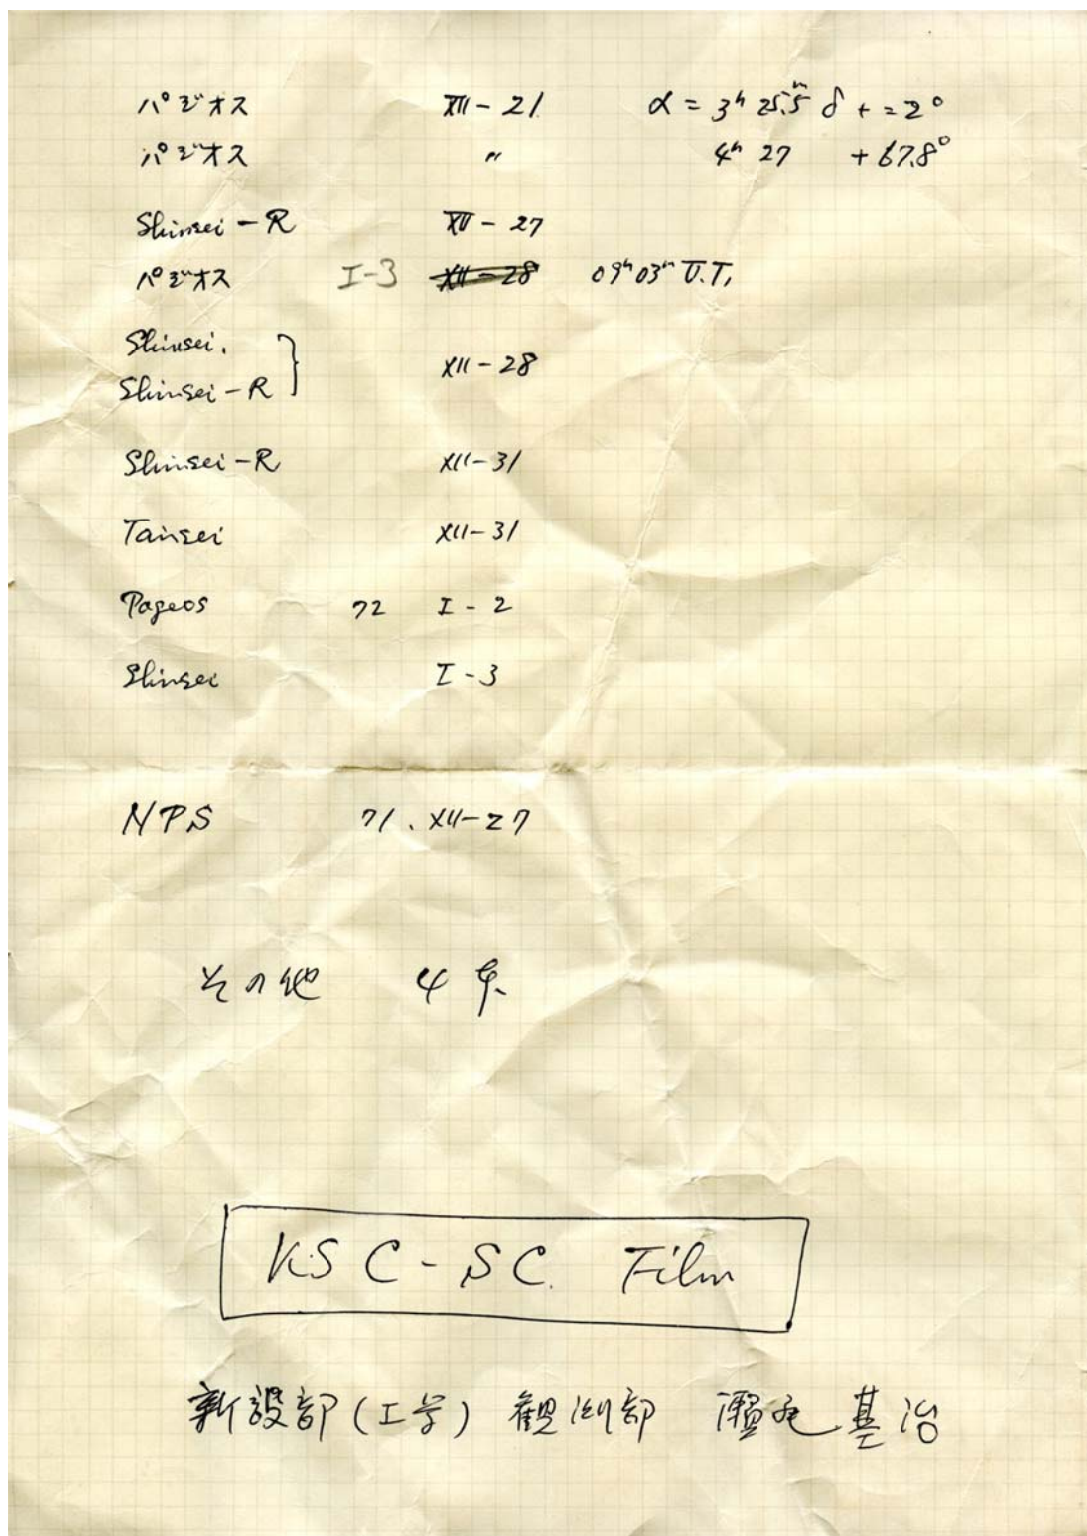 パジオス XII-21 α = 3h 25.5m δ + = 2°
パジオス 〃 4h 27 +67.8°
Shinsei-R XII-27
パジオス I-3 XII-28 09h03m U.T.
Shinsei.
Shinsei-R } XII-28
Shinsei-R XII-31
Tansei XII-31
Pageos 72 I-2
Shinsei I-3
NPS 71.XII-27
その他 4本
KSC-SC. Film
新設部(工学) 観測部 基治